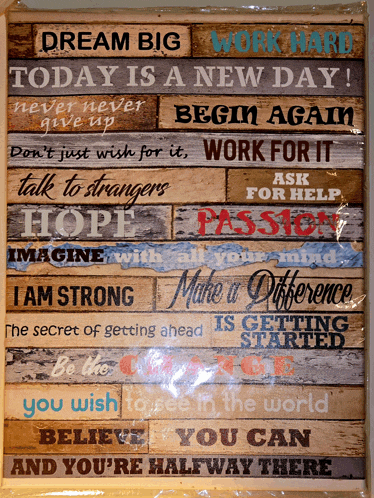 DREAM BIG WORK HARD
TODAY IS A NEW DAY!
never never
give up
BEGIN AGAIN
Don't just wish for it, WORK FOR IT
talk to strangers
ASK
FOR HELP
HOPE PASSION
IMAGINE with all your mind
I AM STRONG Make a Difference
The secret of getting ahead
IS GETTING
STARTED
Be the CHANGE
you wish to see in the world
BELIEVE YOU CAN
AND YOU'RE HALFWAY THERE